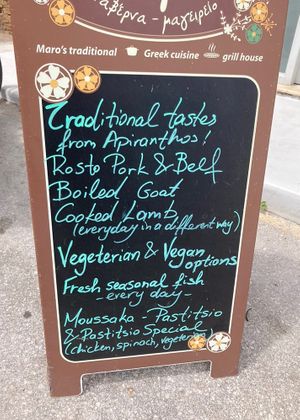 ταβέρνα - μαγειρείο
Maro's traditional Greek cuisine grill house
Traditional tastes
from Apiranthos!
Rosto Pork & Beef
Boiled Goat
Cooked Lamb
(everyday in a different way)
Vegeterian & Vegan
options
Fresh seasonal fish
- every day -
Moussaka - Pastitsio
& Pastitsio Special
(chicken, spinach, vegeterian)